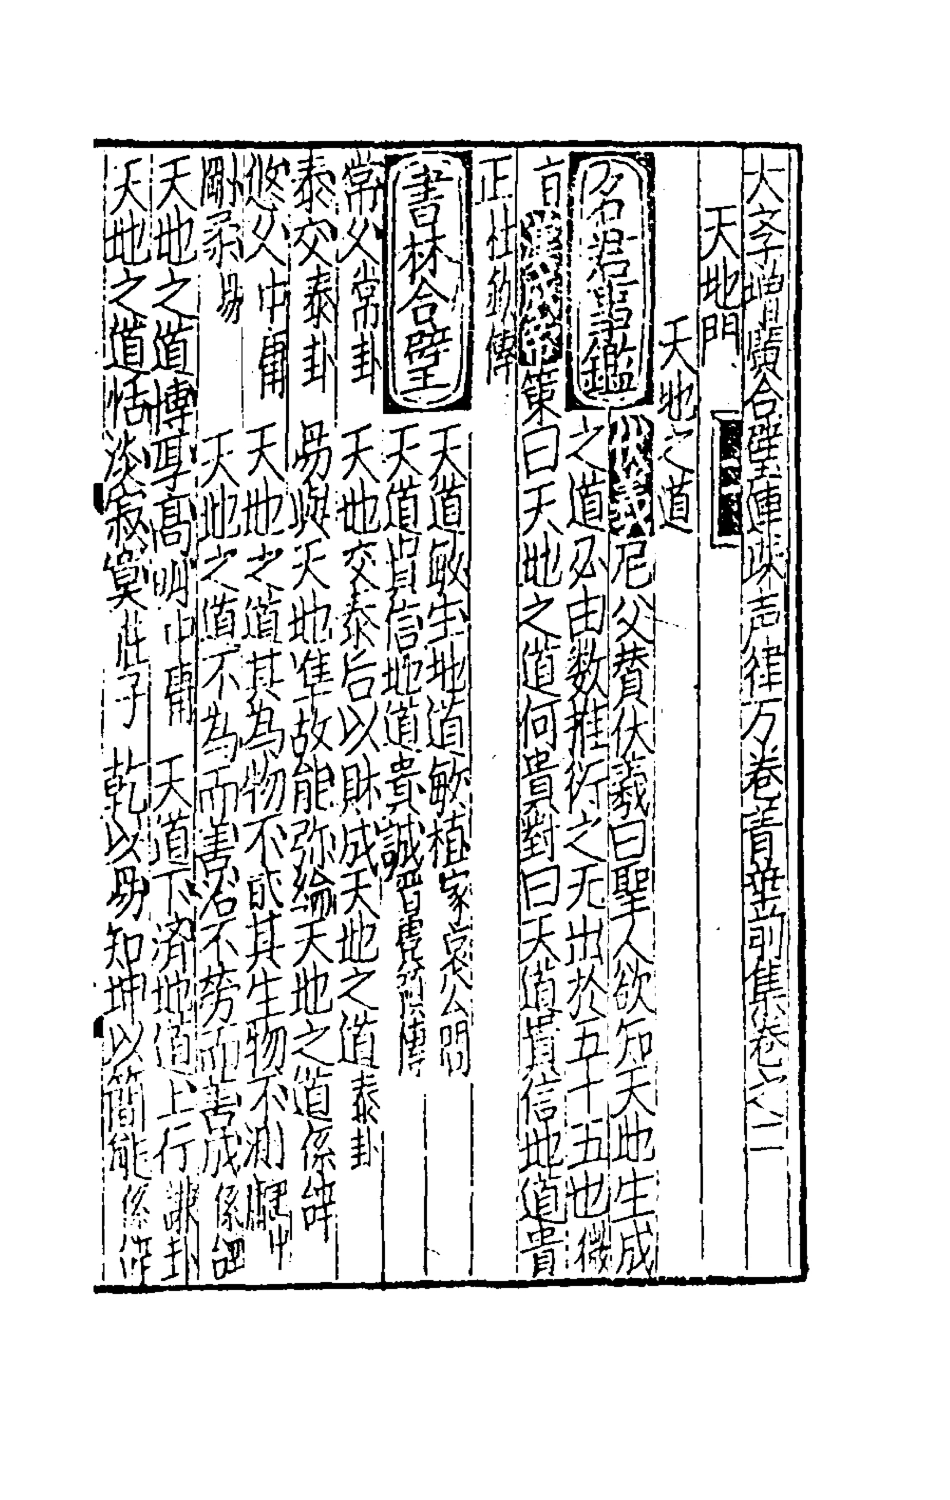 太斈增廣合璧連珠声律万卷菁華前集卷之二
天地門
天地之道
名君事鑑 伏羲 尼父賛伏羲曰聖人欲知天地生成
之道必由数推衍之无出於五十五也微
言 漢武帝 策曰天地之道何貴對曰天道貴信地道貴
正杜欽傳
書林合璧 天道敏生地道敏植家哀公問
天道貴信地道貴誠晋虞預傳
常久常卦 天地交泰后以財成天地之道泰卦
泰交泰卦 易與天地準故能弥綸天地之道係辞
悠久中庸 天地之道其為物不貳其生物不測中庸
剛柔易 天地之道不為而善治不劳而善成係辞
天地之道博厚高明中庸 天道下済地道上行謙卦
天地之道恬淡寂寞庄子 乾以易知坤以簡能係辞